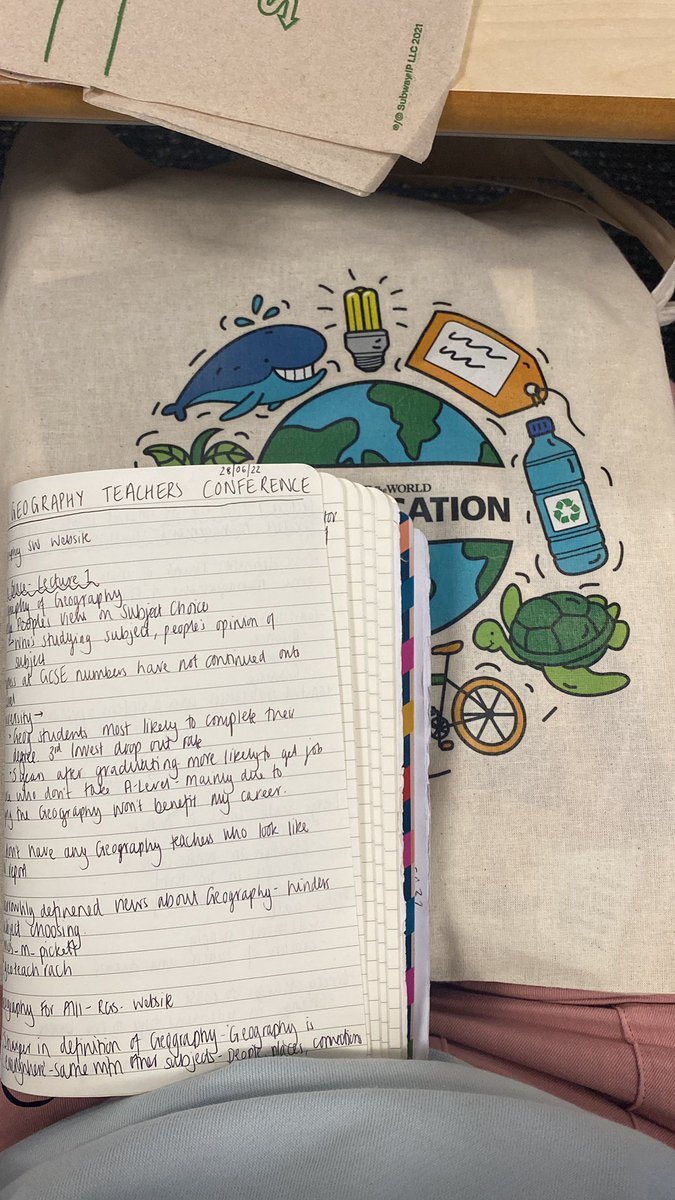 ®/© Subway IP LLC 2021
WORLD
CATION
28/06/22
GEOGRAPHY TEACHERS CONFERENCE
SW Website
Lecture 1
of Geography
People's views on subject choice
Who's studying subject, people's opinion of
subject
at GCSE numbers have not continued onto
students most likely to complete their
degree 3rd lowest drop out rate
5 years after graduating more likely to get job
who don't take A-Level - mainly due to
the Geography won't benefit my career.
have any Geography teachers who look like
defined news about Geography - hinders
choosing.
M - pickett
teach rach
For All - RGS - Website
in definition of Geography - 'Geography is
everywhere - same with other subjects - people, places, connections